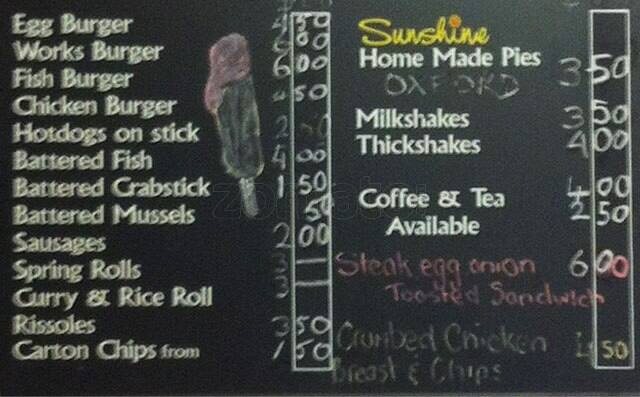 Egg Burger
Works Burger
Fish Burger
Chicken Burger
Hotdogs on stick
Battered Fish 4 00
Battered Crabstick 1 50
Battered Mussels 50
Sausages 2 00
Spring Rolls 3
Curry & Rice Roll 3
Rissoles 3 50
Carton Chips from 1 50
Sunshine
Home Made Pies 3 50
OXFORD
Milkshakes 3 50
Thickshakes 4 00
Coffee & Tea 4 00
Available 2 50
Steak egg onion 6 00
Toasted Sandwich
Crumbed Chicken 50
Breast & Chips